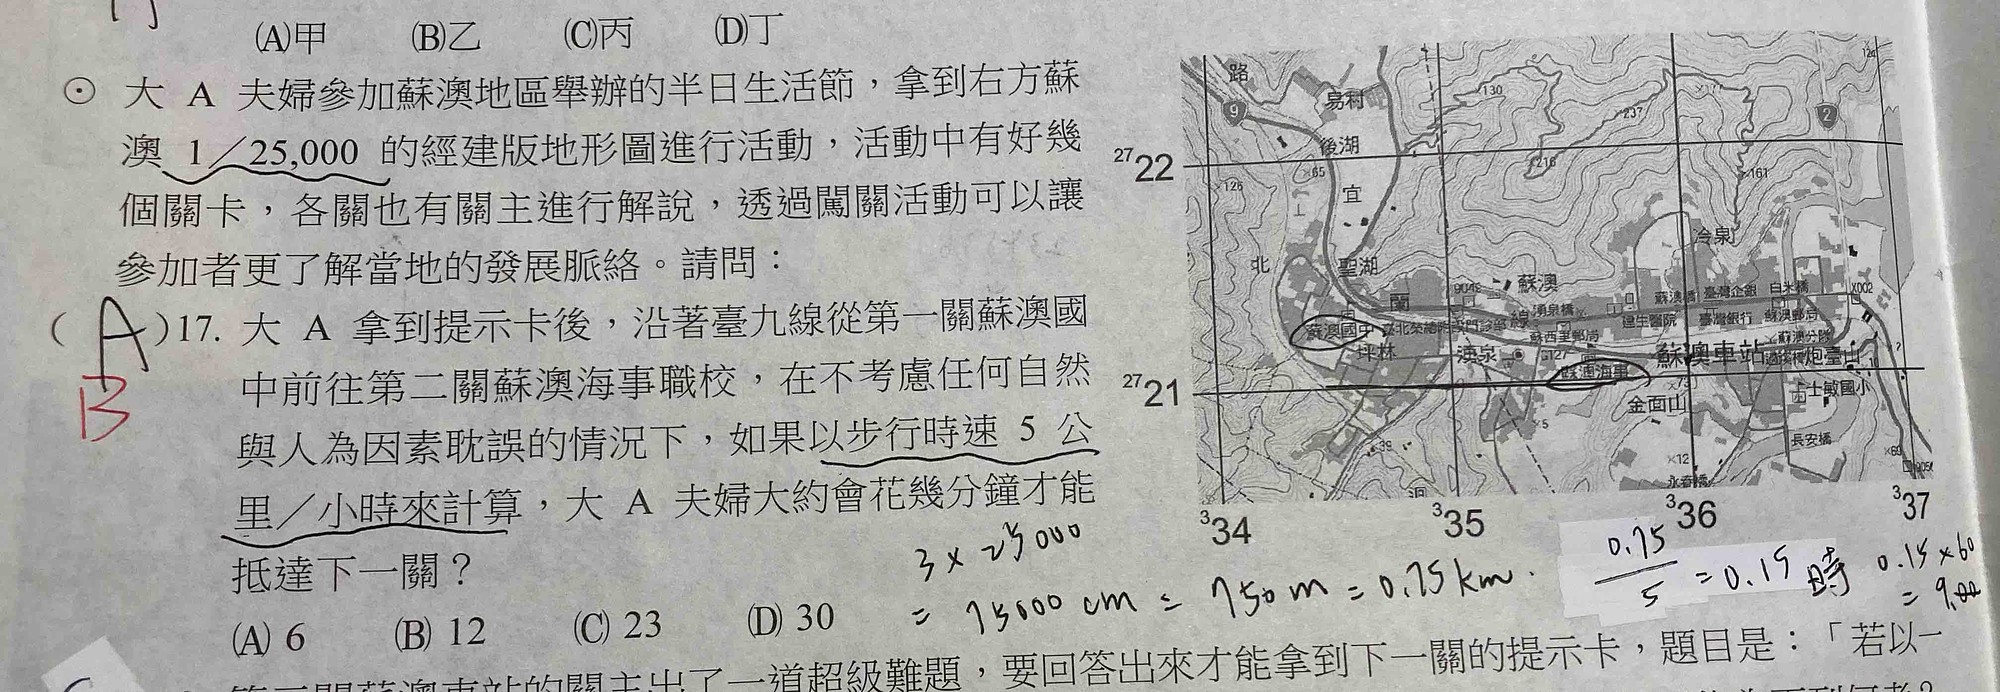 (A)甲 (B)乙 (C)丙 (D)丁
⊙ 大 A 夫婦參加蘇澳地區舉辦的半日生活節，拿到右方蘇
澳 1／25,000 的經建版地形圖進行活動，活動中有好幾
個關卡，各關也有關主進行解說，透過闖關活動可以讓
參加者更了解當地的發展脈絡。請問：
( A )17. 大 A 拿到提示卡後，沿著臺九線從第一關蘇澳國
B
中前往第二關蘇澳海事職校，在不考慮任何自然
與人為因素耽誤的情況下，如果以步行時速 5 公
里／小時來計算，大 A 夫婦大約會花幾分鐘才能
抵達下一關？
(A) 6 (B) 12 (C) 23 (D) 30
3 × 25000
= 75000 cm = 750 m = 0.75 km.
0.75
5
= 0.15 時
0.15 × 60
路
9
易村
130
237
2
後湖
27 22
126
65
宜
216
161
冷泉
北
聖湖
蘭
蘇澳
湧泉橋
蘇澳橋
臺灣企銀
白米橋
X002
蘇澳國中
線
蘇西里郵局
建生醫院
臺灣銀行
蘇澳郵局
蘇澳分隊
坪林
湧泉
127
蘇澳車站
炮臺山
蘇澳海事
27 21
73
金面山
士敏國小
39
5
長安橋
12
69
永春橋
3 34
3 35
3 36
3 37
要回答出來才能拿到下一關的提示卡，題目是：「若以一